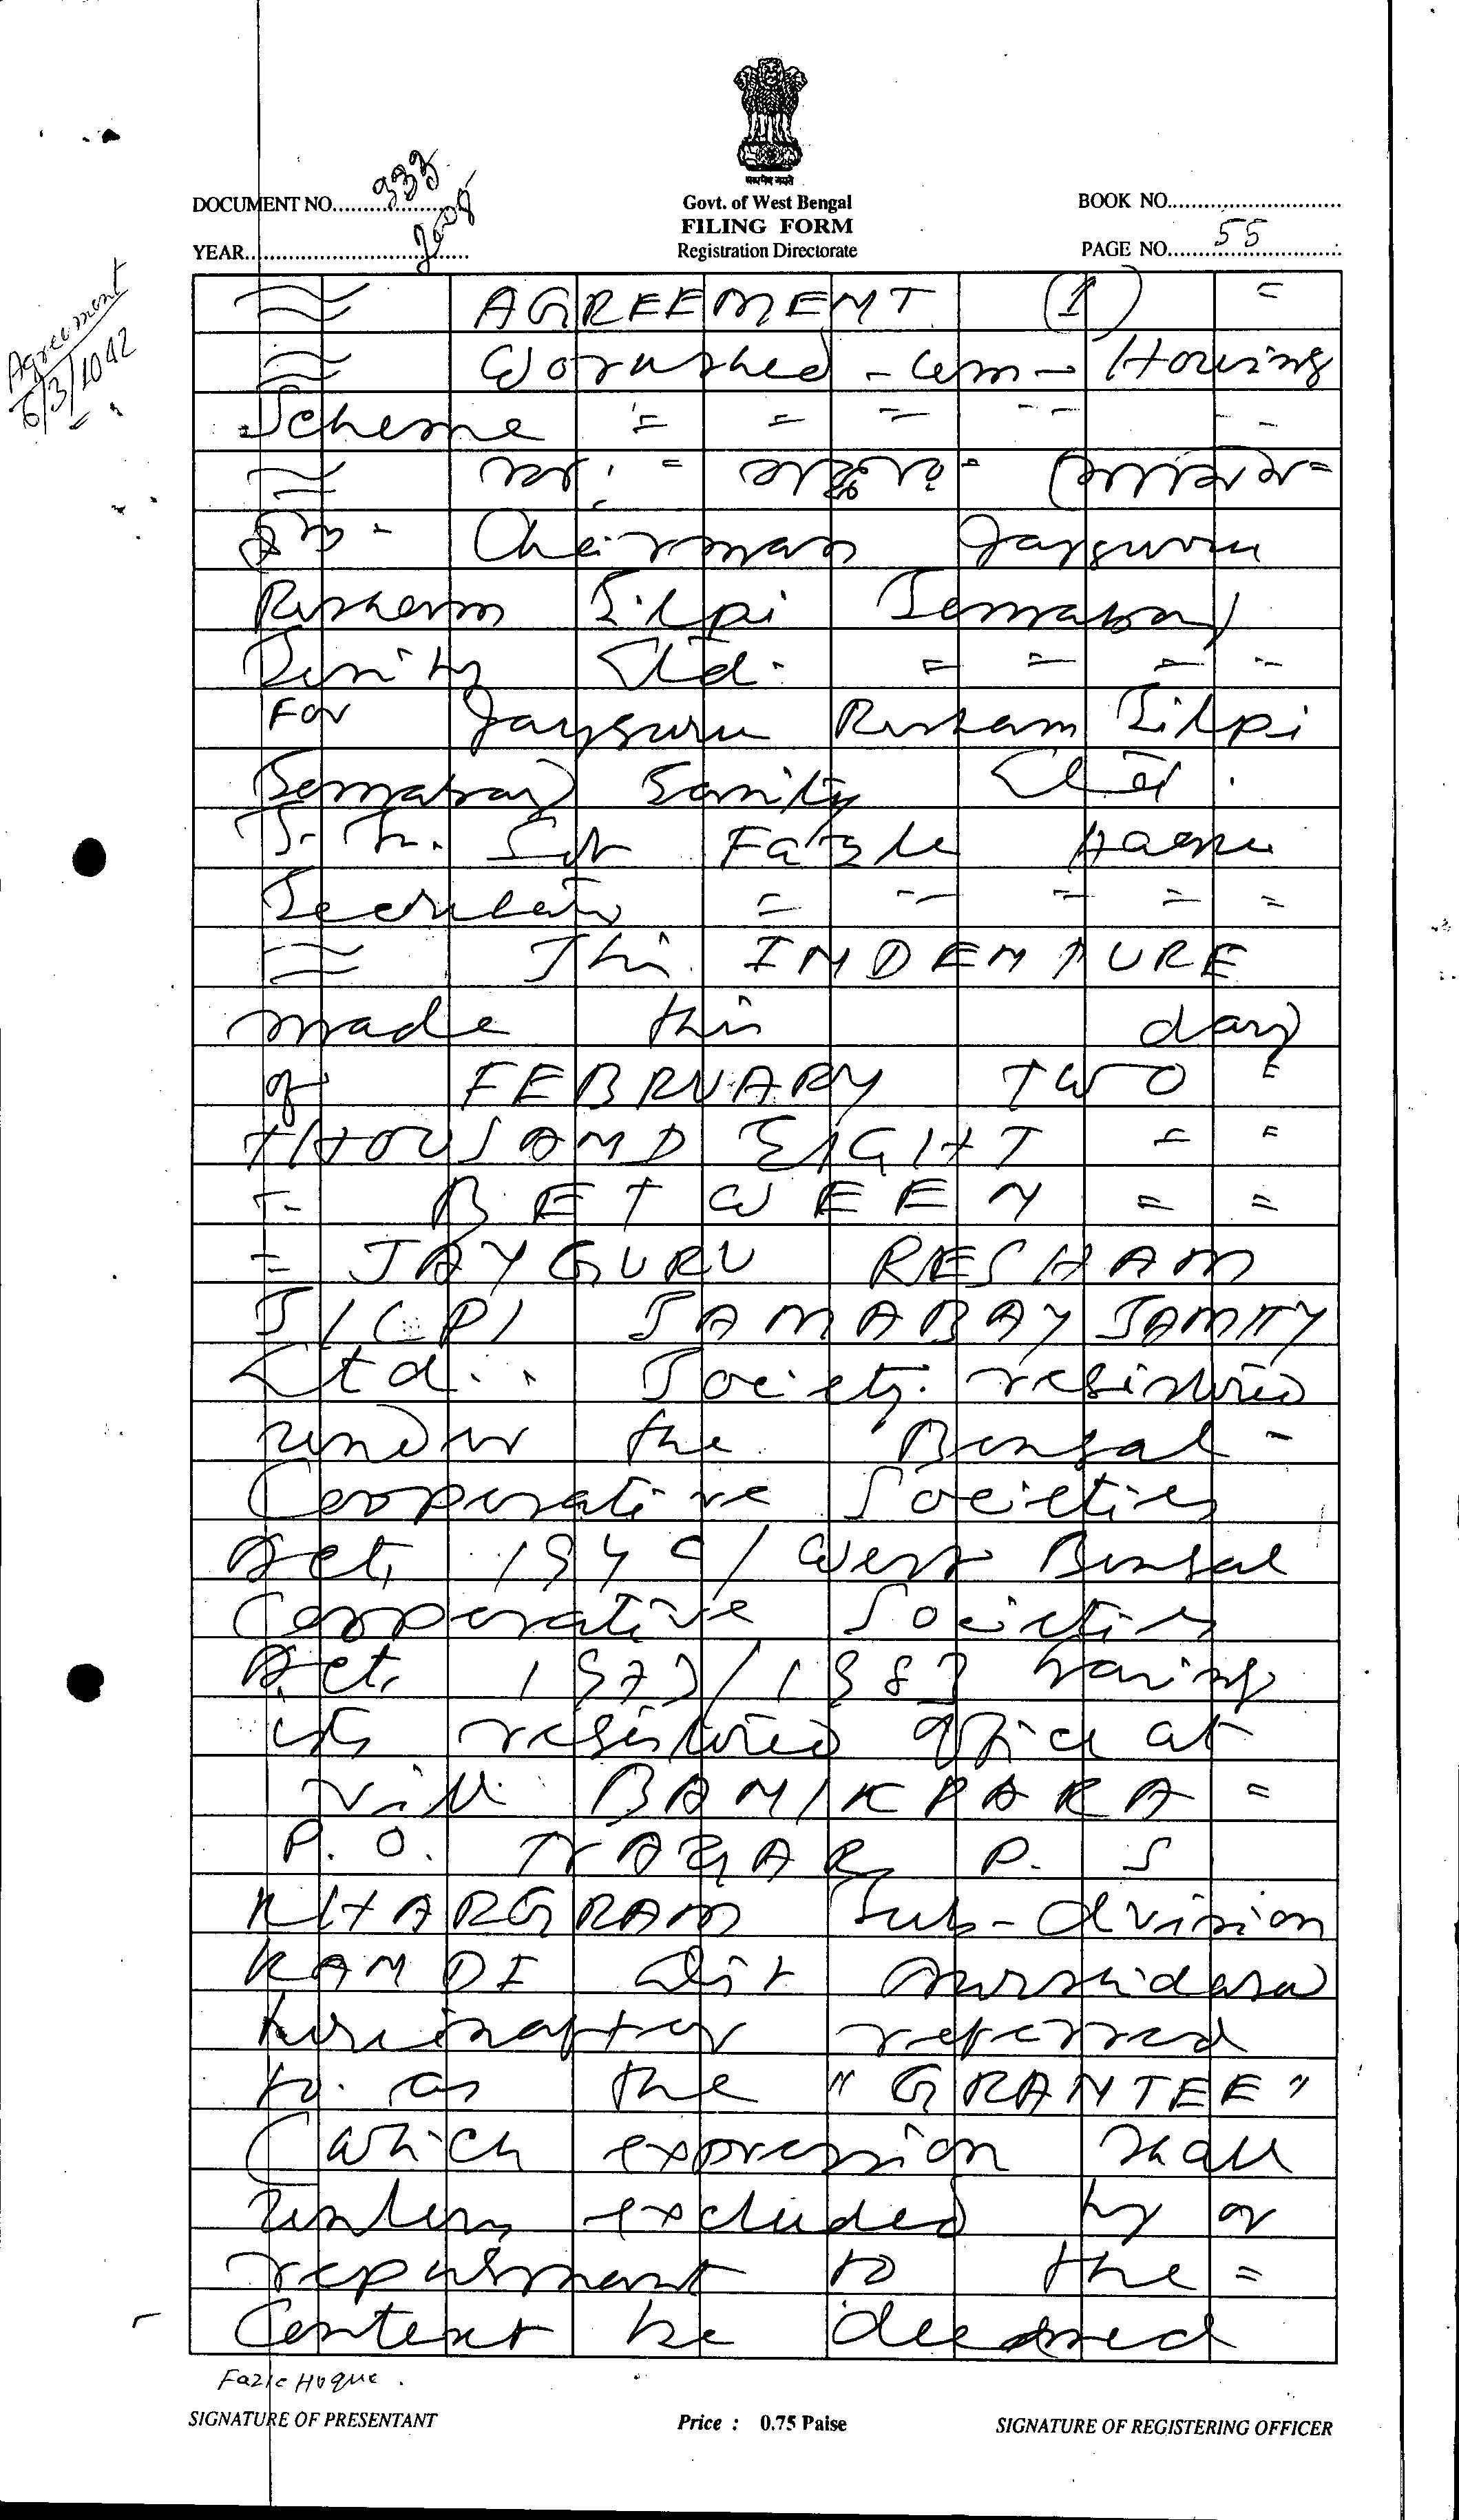 सत्यमेव जयते
DOCUMENT NO. 333
Govt. of West Bengal
BOOK NO.
FILING FORM
YEAR 2008
Registration Directorate
PAGE NO. 55
Agreement
6/3/1042
AGREEMENT (1) =
Workshed - cum - Housing
Scheme = = = = =
Chairman Jayguru
Resham Silpi Samabay
Samity Ltd. = = = =
For Jayguru Resham Silpi
Samabay Samity Ltd.
Fazle Haque
Secretary = = = = =
This INDENTURE
made this day
of FEBRUARY TWO =
THOUSAND EIGHT = =
= BETWEEN = =
= JAYGURU RESHAM
SILPI SAMABAY SAMITY
Ltd. Society registered
under the Bengal -
Cooperative Societies
Act, 1940/West Bengal
Cooperative Societies
Act, 1973/1983 having
its registered office at
Vill. BANIKPARA =
P.O. NAGAR, P.S
KHARGRAM Sub-dvision
KANDI Dist Murshidabad
hereinafter referred
to as the "GRANTEE"
(which expression shall
unless excluded by or
repugnant to the =
Context be deemed
Fazle Hoque.
SIGNATURE OF PRESENTANT
Price : 0.75 Paise
SIGNATURE OF REGISTERING OFFICER